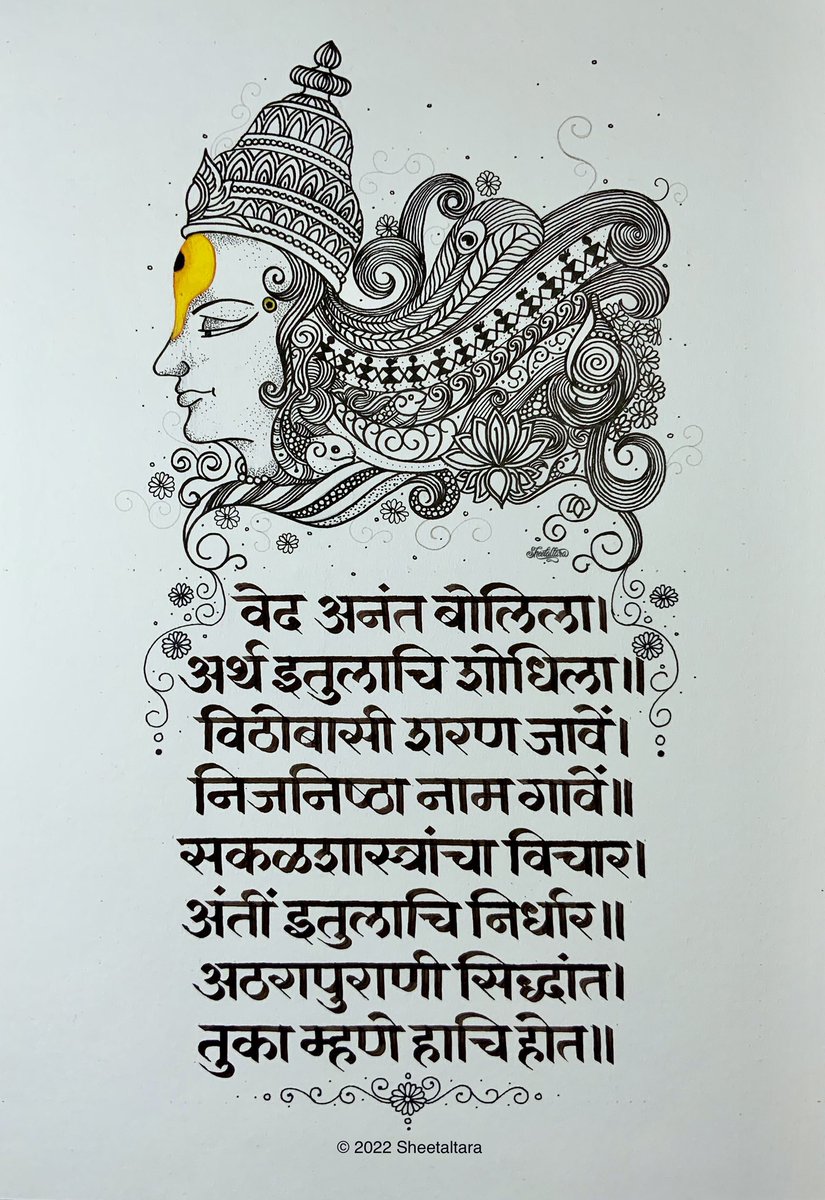 Sheetaltara
वेद अनंत बोलिला।
अर्थ इतुलाचि शोधिला॥
विठोबासी शरण जावें।
निजनिष्ठा नाम गावें॥
सकळशास्त्रांचा विचार।
अंतीं इतुलाचि निर्धार॥
अठरापुराणी सिद्धांत।
तुका म्हणे हाचि होत॥
© 2022 Sheetaltara